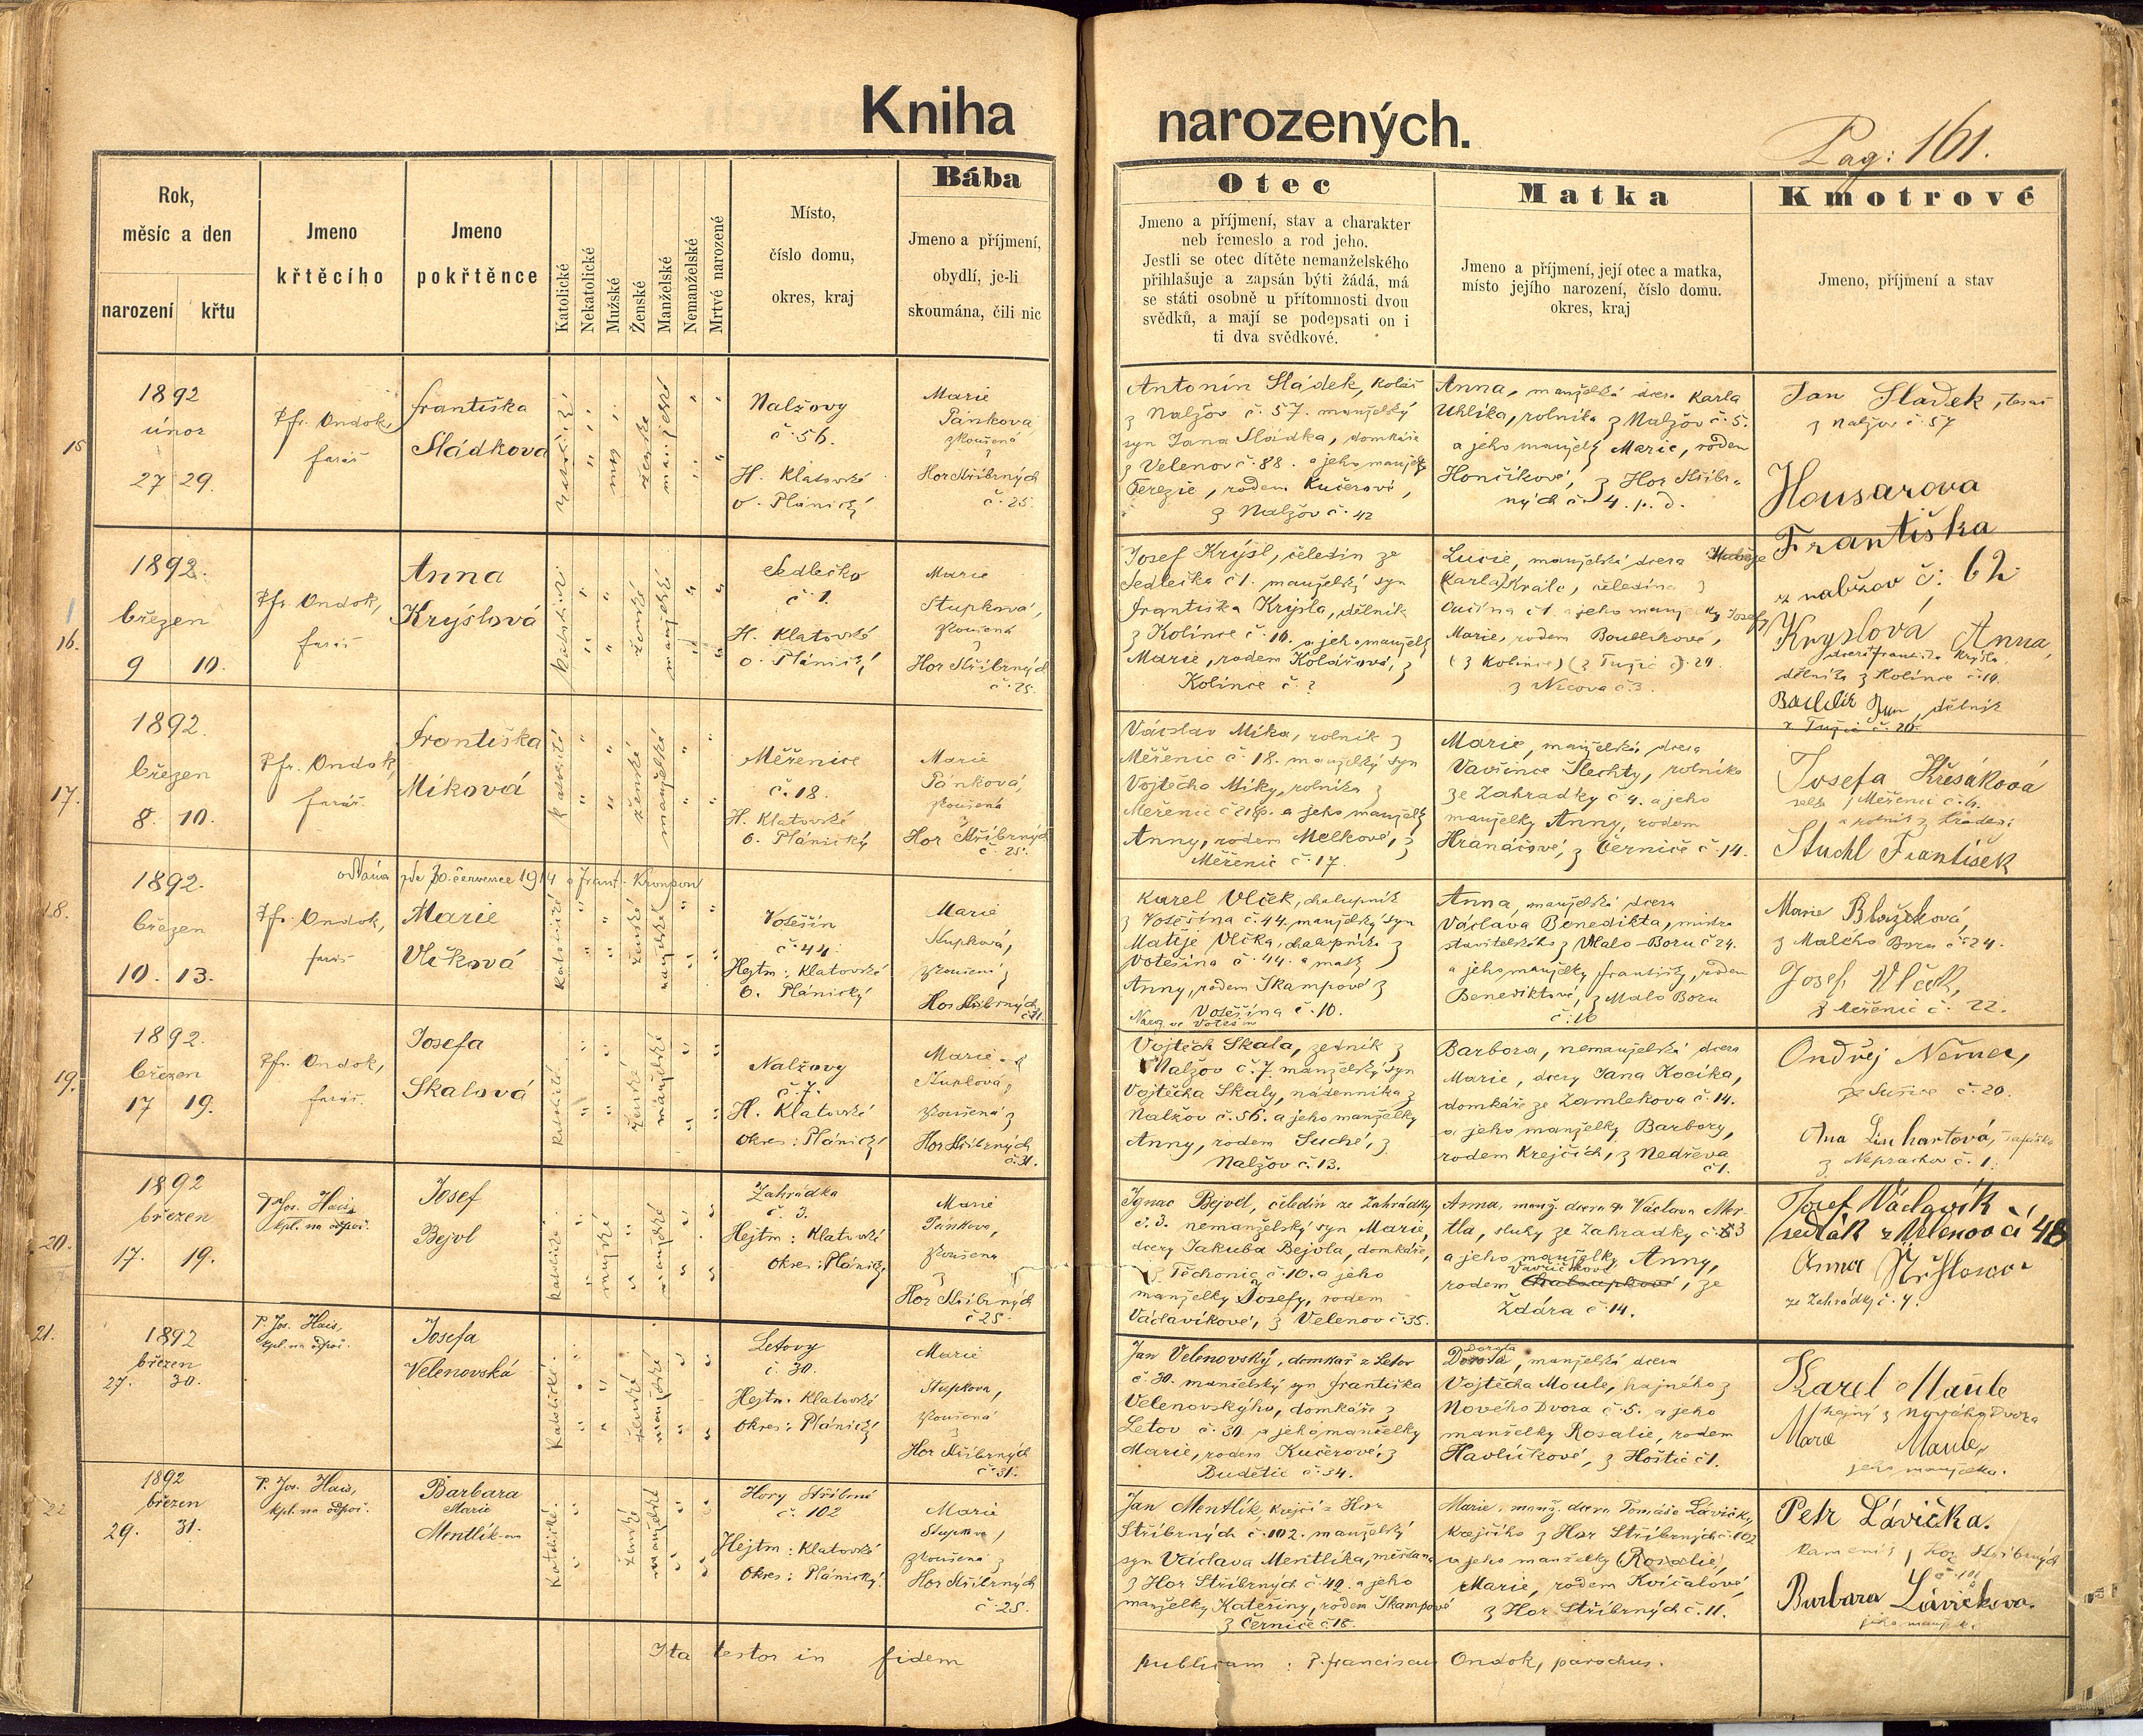 Kniha narozených.
Pag: 161.
Rok,
měsíc a den
narození křtu
Jmeno
křtěcího
Jmeno
pokřtěnce
Katolické
Nekatolické
Mužské
Ženské
Manželské
Nemanželské
Mrtvé narozené
Místo,
číslo domu,
okres, kraj
Bába
Jmeno a příjmení,
obydlí, je-li
skoumána, čili nic
Otec
Jmeno a příjmení, stav a charakter
neb řemeslo a rod jeho.
Jestli se otec dítěte nemanželského
přihlašuje a zapsán býti žádá, má
se státi osobně u přítomnosti dvou
svědků, a mají se podepsati on i
ti dva svědkové.
Matka
Jmeno a příjmení, její otec a matka,
místo jejího narození, číslo domu.
okres, kraj
Kmotrové
Jmeno, příjmení a stav
15
1892
únor
27 29.
Pfr. Ondok,
farář
Františka
Sládkova
ženské
Nalžovy
č. 56.
H. Klatovské
o. Plánický
Marie
Pánkova,
zkoušená
z
Hor Stříbrných
č. 25.
Antonín Sládek, kolář
z Nalžov č. 57. manželský
syn Jana Sládka, domkáře
z Velenov č. 88. a jeho manželky
Terezie, rodem Kučerové,
z Nalžov č. 42
Anna, manželská dcera Karla
Uhlíka, rolníka z Nalžov č. 5.
a jeho manželky Marie, rodem
Hončíkové, z Hor Stříbr-
ných č. 4. p. d.
Jan Sladek, tesař
z Nalžov č. 57
Housarova
Františka
z nalžov č: 62
16.
1892.
březen
9 10.
Pfr. Ondok,
farář
Anna
Krýslová
ženské
manželské
Sedlečko
č. 1.
H. Klatovské
o. Plánický
Marie
Stupková,
zkoušená
z
Hor Stříbrných
č. 25.
Josef Krýsl, čeledín ze
Sedlečka č 1. manželský syn
Františka Krýsla, dělníka
z Kolince č. 10. a jeho manželky
Marie, rodem Kolářové, z
Kolince č. ?
Lucie, manželská dcera
(Karla) Krále, čeledína z
č 1. a jeho manželky
Marie, rodem
(z Kolince)
z Nicova č. 3.
Kryslová Anna,
dcera Františka Krýsla,
dělníka z Kolince č. 10.
dělník
17.
1892.
březen
8. 10.
Pfr. Ondok,
farář.
Františka
Míková
ženské
manželské
Měřenice
č. 18.
H. Klatovské
O. Plánický
Marie
Pánková,
zkoušená
z
Hor Stříbrných
č. 25.
Václav Míka, rolník z
Měřenic č 18. manželský syn
Vojtěcha Míky, rolníka z
Měřenic č 18. a jeho manželky
Anny, rodem Melkové, z
Měřenic č. 17.
Marie, manželská dcera
Vavřince Šlechty, rolníka
ze Zahrádky č 4. a jeho
manželky Anny, rodem
Hranáčové, z Černíče č. 14.
Josefa Křesáková
z Měřenic č. 6.
Stuchl František
18.
oddána zde 30. července 1914 s Frant.
1892.
březen
10. 13.
Pfr. Ondok,
farář
Marie
Vlčková
katolické
ženské
manželské
Votěšín
č. 44
Hejtm: Klatovské
O. Plánický
Marie
Stupková,
zkoušená z
Hor Stříbrných
č. 31.
Karel Vlček, chalupník
z Votěšína č. 44. manželský syn
Matěje Vlčka, chalupníka z
Votěšína č. 44. a matky
Anny, rodem Škampové z
Votěšína č. 10.
Anna, manželská dcera
Václava Benedikta, mistra
stavitelského z Malo-Boru č 24.
a jeho manželky Františky, rodem
Benediktové, z Malo Boru
č. 16
Marie Blažková,
z Malého Boru č 24.
Josef Vlček,
z Měřenic č. 22.
19.
1892.
březen
17 19.
Pfr. Ondok,
farář.
Josefa
Skalová
katolické
ženské
manželské
Nalžovy
č. 7.
H. Klatovské
Okres: Plánický
Marie
Stupková,
zkoušená z
Hor Stříbrných
č. 31.
Vojtěch Skala, zedník z
Nalžov č. 7. manželský syn
Vojtěcha Skaly, nádenníka z
Nalžov č. 56. a jeho manželky
Anny, rodem Suché, z
Nalžov č. 13.
Barbora, nemanželská dcera
Marie, dcery Jana Kocíka,
domkáře ze Zamlekova č. 14.
a jeho manželky Barbory,
rodem Krejčích, z Nedřeva
č 1.
Ondřej Němec,
ze Sušice č. 20.
Ana Linhartová,
z Neprachov č. 1.
20.
1892
březen
17. 19.
P. Jos. Hais,
kpl. na odpoč.
Josef
Bejvl
Katolické.
mužské
manželské
Zahrádka
č. 3.
Hejtm: Klatovské
Okres: Plánický
Marie
Pánkova,
zkoušená
z
Hor Stříbrných
č 25.
Ignac Bejvl, čeledín ze Zahrádky
č. 3. nemanželský syn Marie,
dcery Jakuba Bejvla, domkáře,
z Těchonic č. 10. a jeho
manželky Josefy, rodem
Václavíkové, z Velenov č 35.
Anna, manž. dcera Václava Mar-
tla, sluhy ze Zahradky č. 3
a jeho manželky Anny,
rodem Chaloupkové, ze
Ždára č. 14.
Josef Václavík
sedlák z Velenov čí 48
Anna
ze Zahrádky č. 4.
21.
1892
březen
27. 30.
P. Jos. Hais,
kpl. na odpoč.
Josefa
Velenovská
Katolické.
ženské
manželské
Letovy
č. 30.
Hejtm. Klatovské
Okres: Plánický
Marie
Stupkova,
zkoušená
z
Hor Stříbrných
č. 31.
Jan Velenovský, domkář z Letov
č. 30. manželský syn Františka
Velenovského, domkáře z
Letov č. 30 a jeho manželky
Marie, rodem Kučerové, z
Budětic č. 34.
Dorota
Dorota, manželská dcera
Vojtěcha Moule, hajného z
Nového Dvora č. 5. a jeho
manželky Rosalie, rodem
Havlíčkové, z Hoštic č 1.
Karel Maule
hajný z Nového Dvora
Marie Maule,
jeho manželka.
22
1892
březen
29. 31.
P. Jos. Hais,
kpl. na odpoč.
Barbara
Marie
Mentlík-ova
Katolické.
ženské
manželské
Hory Stříbrné
č. 102
Hejtm: Klatovské
Okres: Plánický.
Marie
Stupkova,
zkoušená z
Hor Stříbrných
č. 25.
Jan Mentlík, krejčí z Hor
Stříbrných č. 102. manželský
syn Václava Mentlíka, měšťana
z Hor Stříbrných č. 42. a jeho
manželky Kateřiny, rodem Škampové
z Černíče č 18.
Marie, manž. dcera Tomáše Lávičky,
krejčího z Hor Stříbrných č. 102
a jeho manželky (Rosalie),
Marie, rodem Kvíčalové
z Hor Stříbrných č. 11.
Petr Lávička.
kameník z Hor Stříbrných
č 101
Barbara Lávičkova.
jeho manželk.
Ita testor in fidem publicam : P. Franciscus Ondok, parochus.